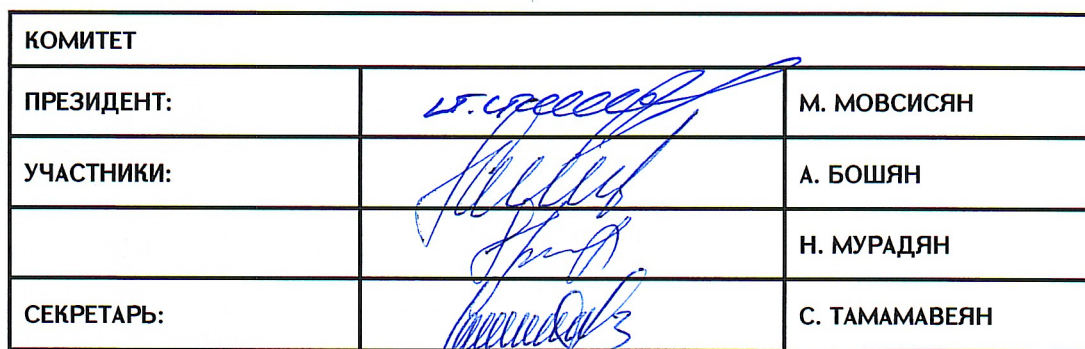 КОМИТЕТ
ПРЕЗИДЕНТ: М. МОВСИСЯН
УЧАСТНИКИ: А. БОШЯН
Н. МУРАДЯН
СЕКРЕТАРЬ: С. ТАМАМАВЕЯН